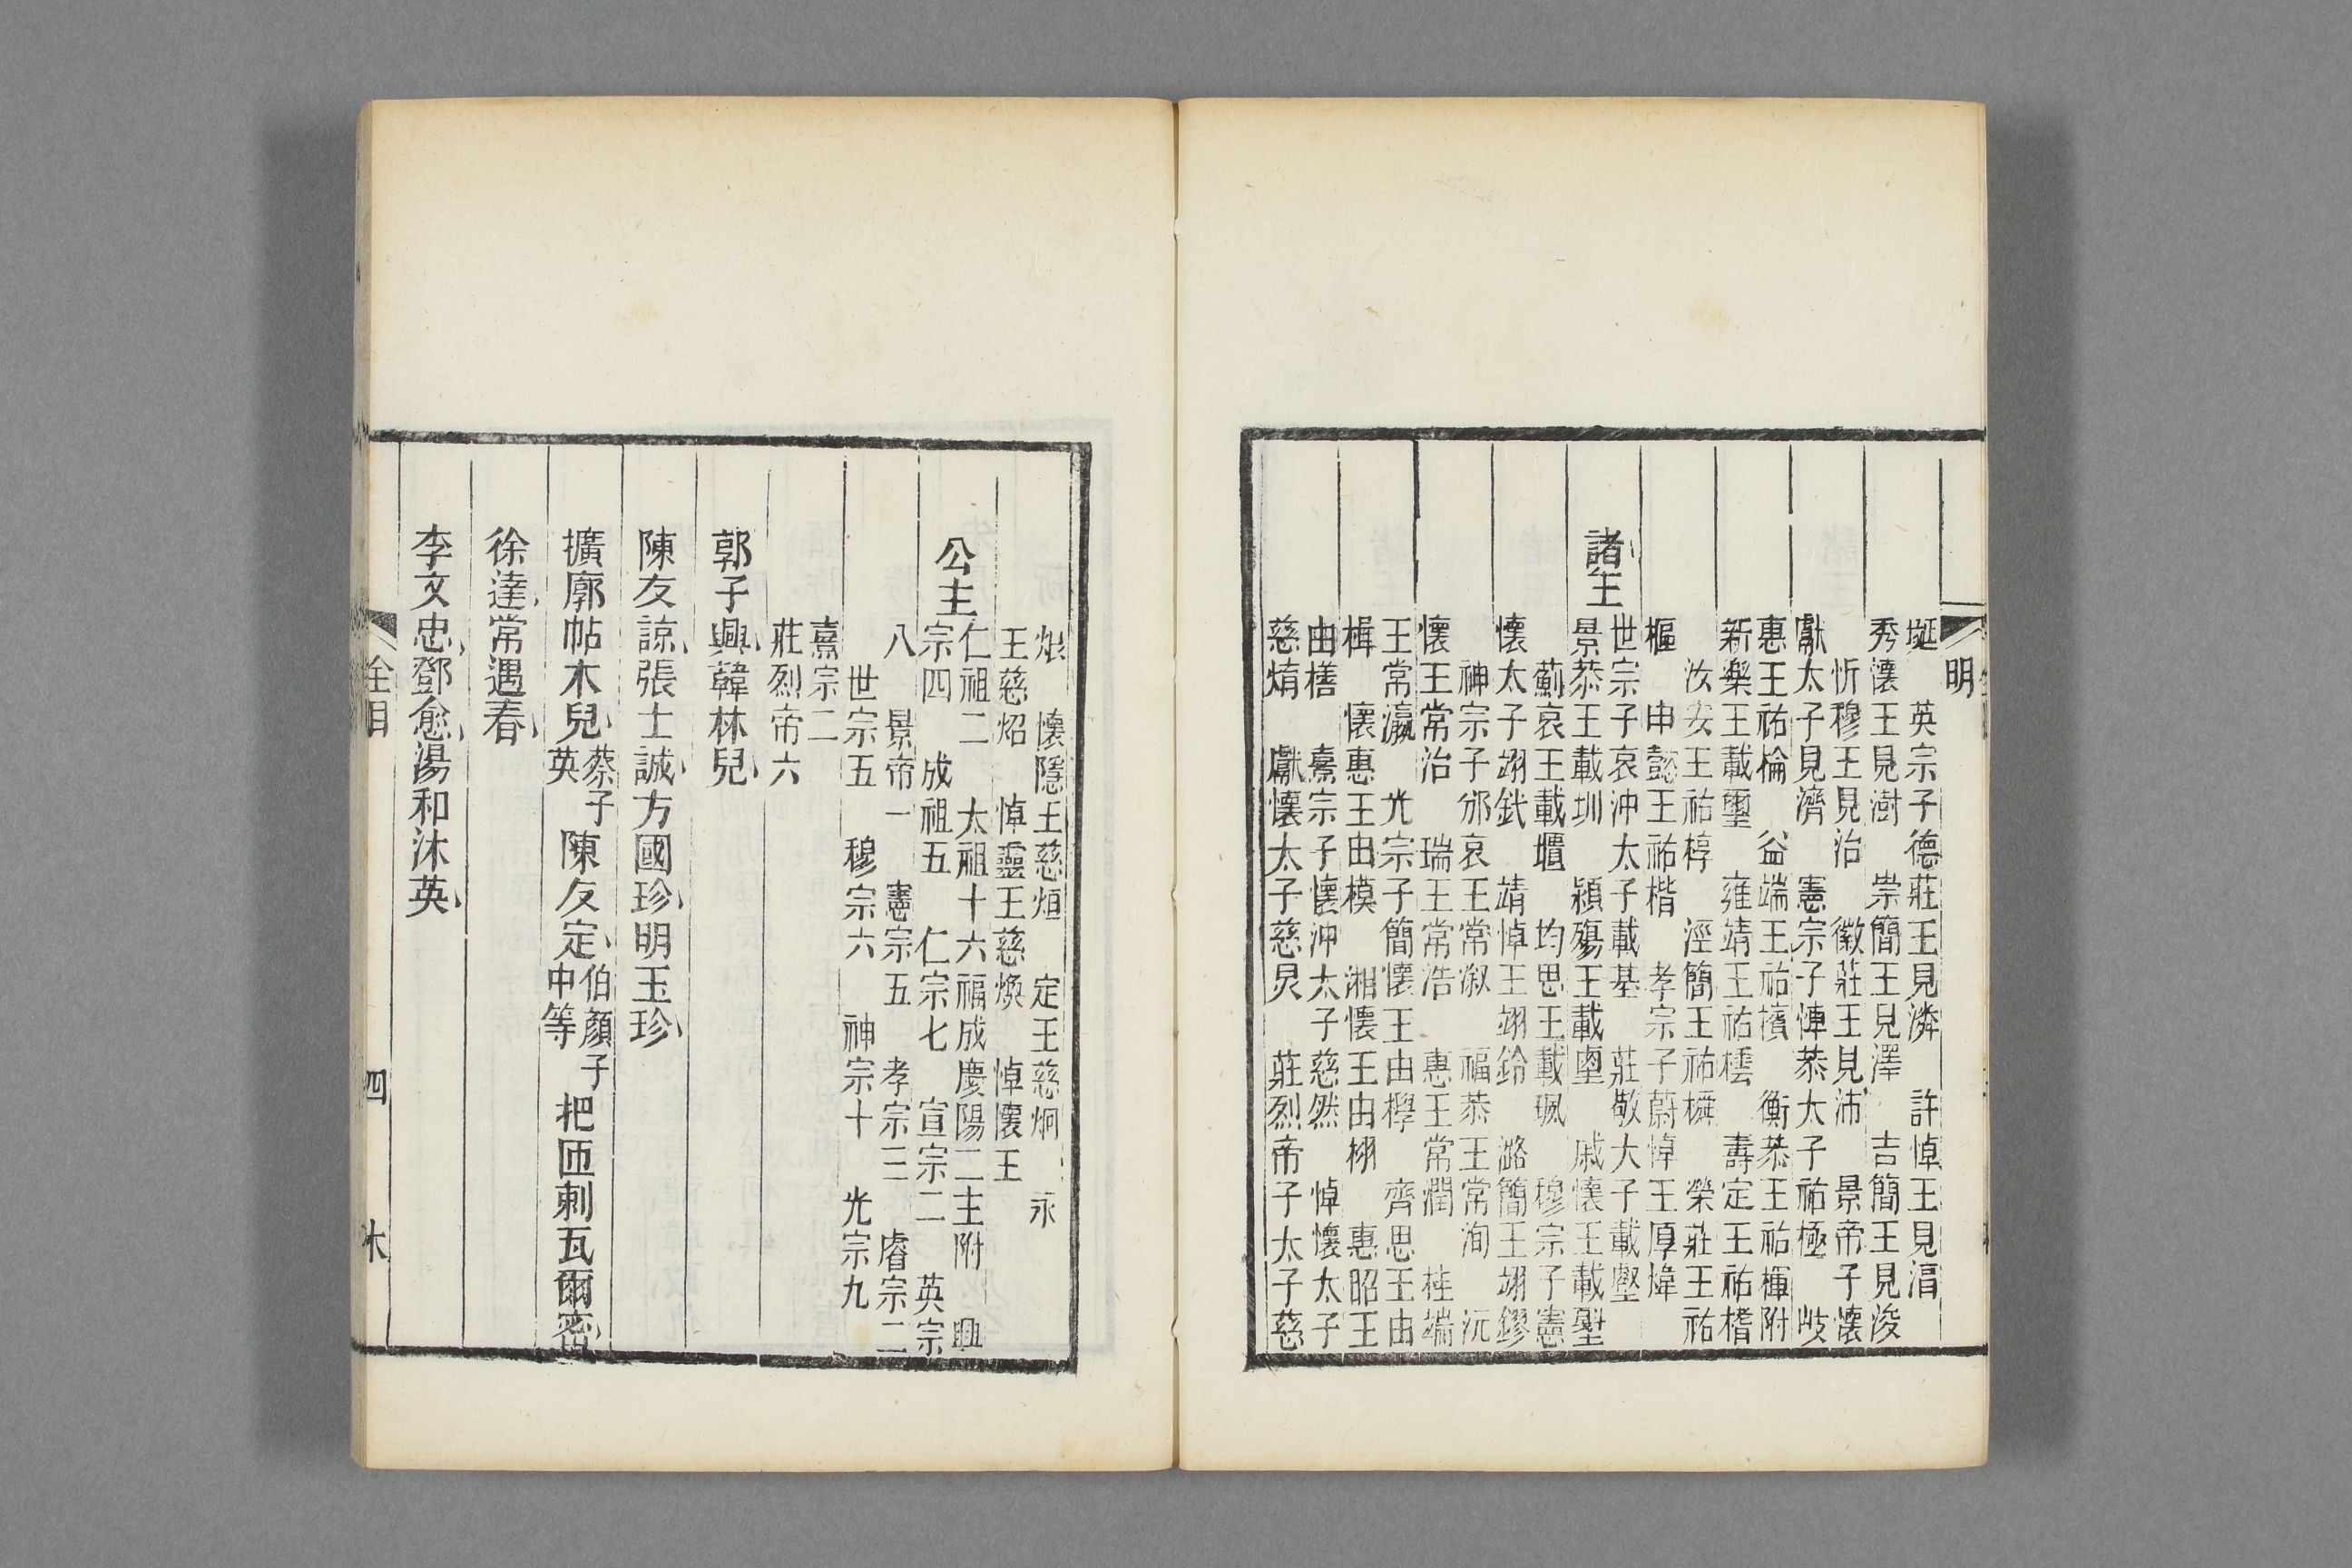 明
埏 英宗子德莊王見潾 許悼王見淐
秀懷王見澍 崇簡王見澤 吉簡王見浚
忻穆王見治 徽莊王見沛 景帝子懷
獻太子見濟 憲宗子悼恭太子祐極 岐
惠王祐棆 益端王祐檳 衡恭王祐楎附
新樂王載璽 雍靖王祐橒 壽定王祐榰
汝安王祐梈 涇簡王祐橓 榮莊王祐
樞 申懿王祐楷 孝宗子蔚悼王厚煒
諸王
世宗子哀沖太子載基 莊敬太子載壡
景恭王載圳 潁殤王載𡐤 戚懷王載㙺
薊哀王載㙺 均思王載㙉 穆宗子憲
懷太子翊釴 靖悼王翊鈴 潞簡王翊鏐
神宗子邠哀王常溆 福恭王常洵 沅
懷王常治 瑞王常浩 惠王常潤 桂端
王常瀛 光宗子簡懷王由㰒 齊思王由
楫 懷惠王由模 湘懷王由栩 惠昭王
由橏 熹宗子懷沖太子慈然 悼懷太子
慈焴 獻懷太子慈炅 莊烈帝子太子慈
烺 懷隱王慈烜 定王慈炯 永
王慈炤 悼靈王慈煥 悼懷王
公主
仁祖二 太祖十六福成慶陽二主附 興
宗四 成祖五 仁宗七 宣宗二 英宗
八 景帝一 憲宗五 孝宗三 睿宗二
世宗五 穆宗六 神宗十 光宗九
熹宗二
莊烈帝六
郭子興韓林兒
陳友諒張士誠方國珍明玉珍
擴廓帖木兒蔡子英 陳友定伯顏子中等 把匝剌瓦爾密
徐達常遇春
李文忠鄧愈湯和沐英
全目
四